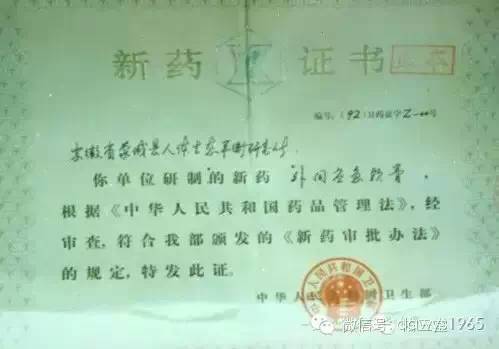 新药证书
正本
编号:(92)卫药证字Z-号
安徽省蒙城县人体生态平衡研究所
你单位研制的新药 ,
根据《中华人民共和国药品管理法》,经
审查,符合我部颁发的《新药审批办法》
的规定,特发此证。
中华人民共和国卫生部
微信号: ddwzys1965